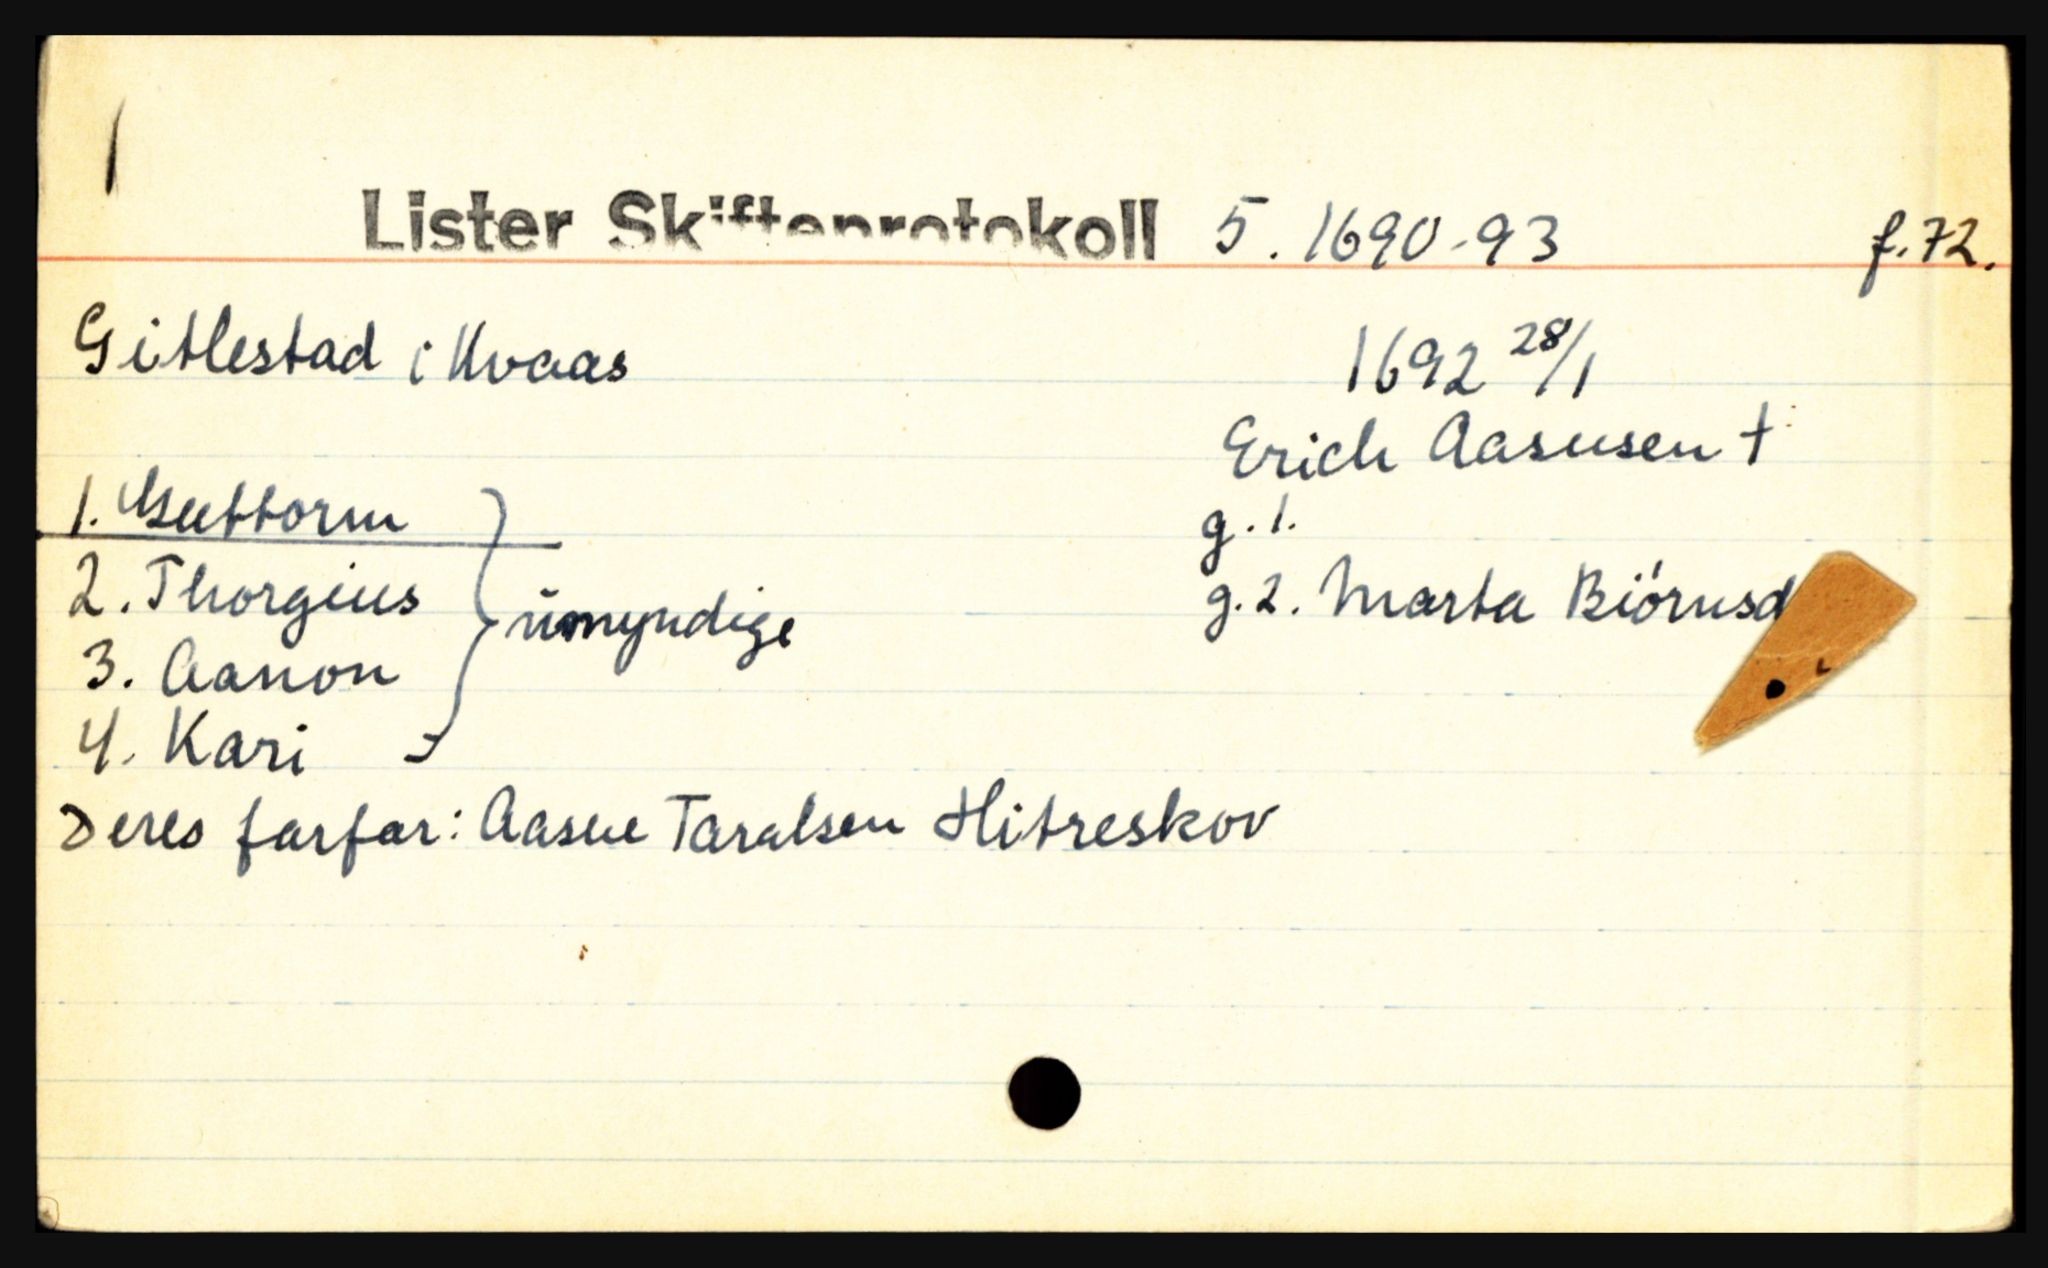 Lister Skifteprotokoll 5. 1690-93 f. 72.
Gitlestad i Kvaas
1692 28/1
Erich Aasusen †
1. Guttorm
g. 1.
2. Thorgius
g. 2. Marta Biörnsd
umyndige
3. Aanon
4. Kari
Deres farfar: Aasue Taralsen Hitreskov